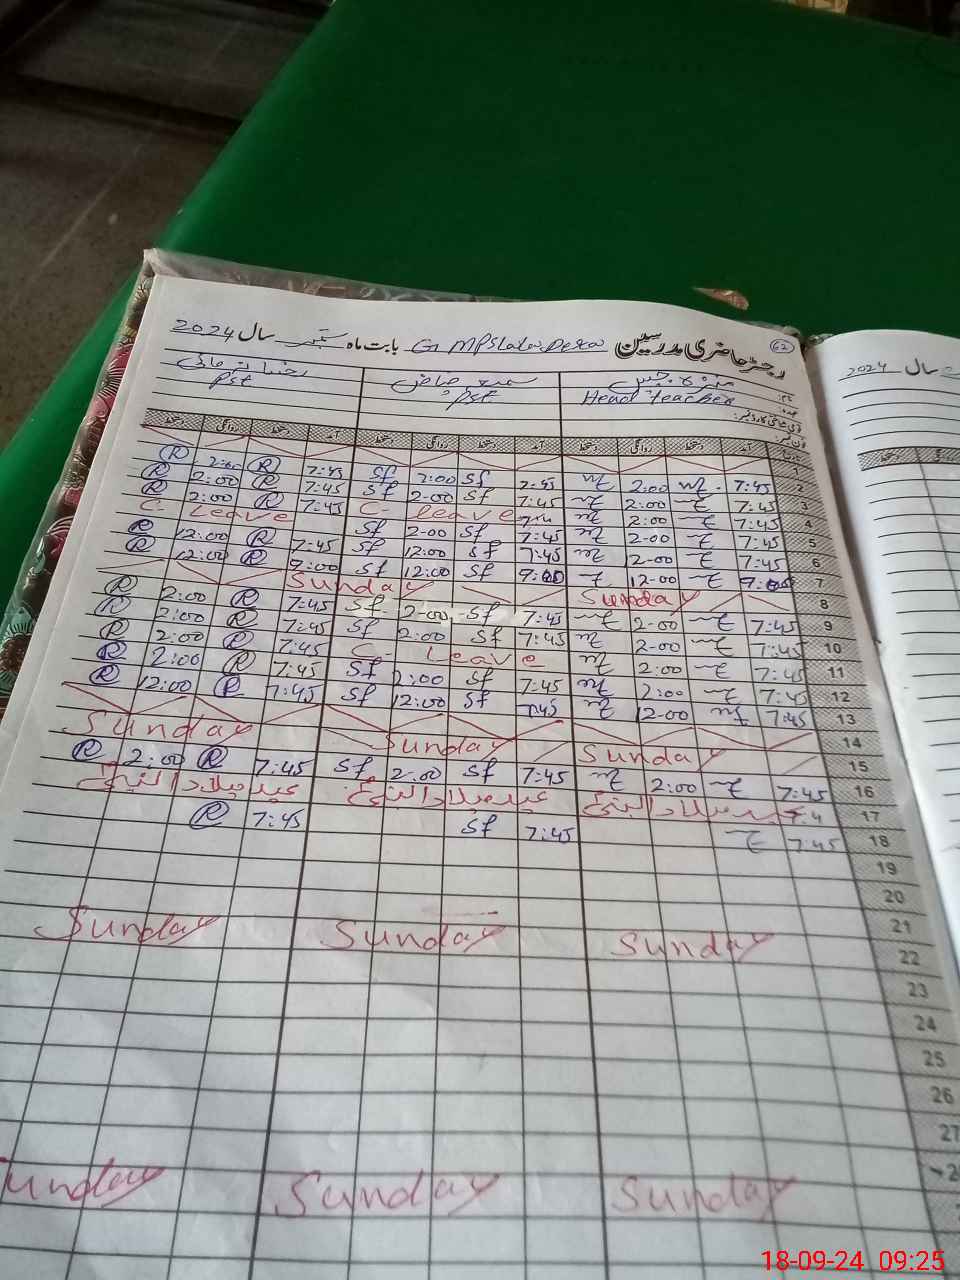 رجسٹر حاضری مدرسین G MPS بابت ماہ ستمبر سال 2024
62
2024 سال
نام:
عہدہ:
Head teacher PST PST
آمد دستخط روانگی دستخط آمد دستخط روانگی دستخط آمد دستخط روانگی دستخط
1
2 7:45 2:00 7:45 Sf 2:00 Sf 7:45 R 2:00 R
3 7:45 2:00 7:45 Sf 2-00 Sf 7:45 R 2:00 R
4 7:45 2:00 C- Leave 7:45 R 2:00 R
5 7:45 2-00 7:45 Sf 2-00 Sf C- Leave
6 7:45 12-00 7:45 Sf 12:00 Sf 7:45 R 12:00 R
7 9:05 12-00 9:05 Sf 12:00 Sf 9:00 R 12:00 R
8 Sunday Sunday
9 7:45 2-00 7:45 Sf 2-00 Sf 7:45 R 2:00 R
10 7:45 2-00 7:45 Sf 2:00 Sf 7:45 R 2:00 R
11 7:45 2:00 C- Leave 7:45 R 2:00 R
12 7:45 2:00 7:45 Sf 2:00 Sf 7:45 R 2:00 R
13 7:45 12-00 7:45 Sf 12:00 Sf 7:45 R 12:00 R
14
15 Sunday Sunday Sunday
16 7:45 2:00 7:45 Sf 2:00 Sf 7:45 R 2:00 R
17 عید میلاد النبیؐ عید میلاد النبیؐ عید میلاد النبیؐ
18 7:45 7:45 Sf 7:45 R
19
20
21
22 Sunday Sunday Sunday
23
24
25
26
27
Sunday Sunday Sunday
18-09-24 09:25